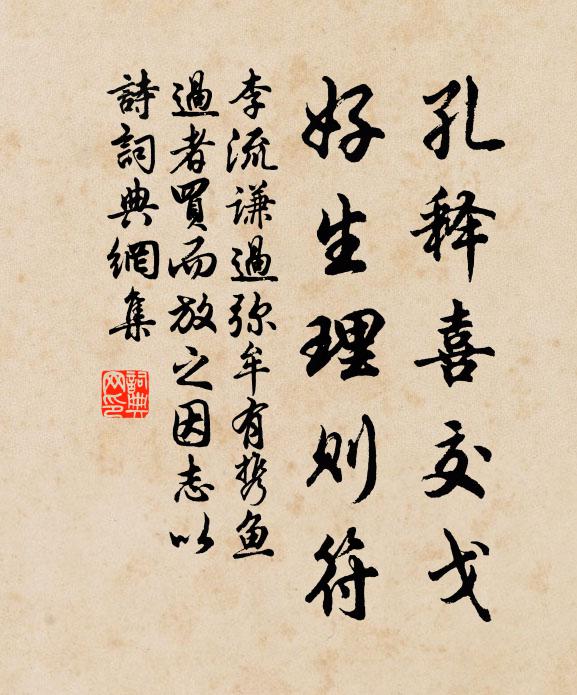 孔释喜交戈
好生理则符
李流谦過弥牟有携鱼
過者買而放之因志以
詩詞典網集
詞典网印